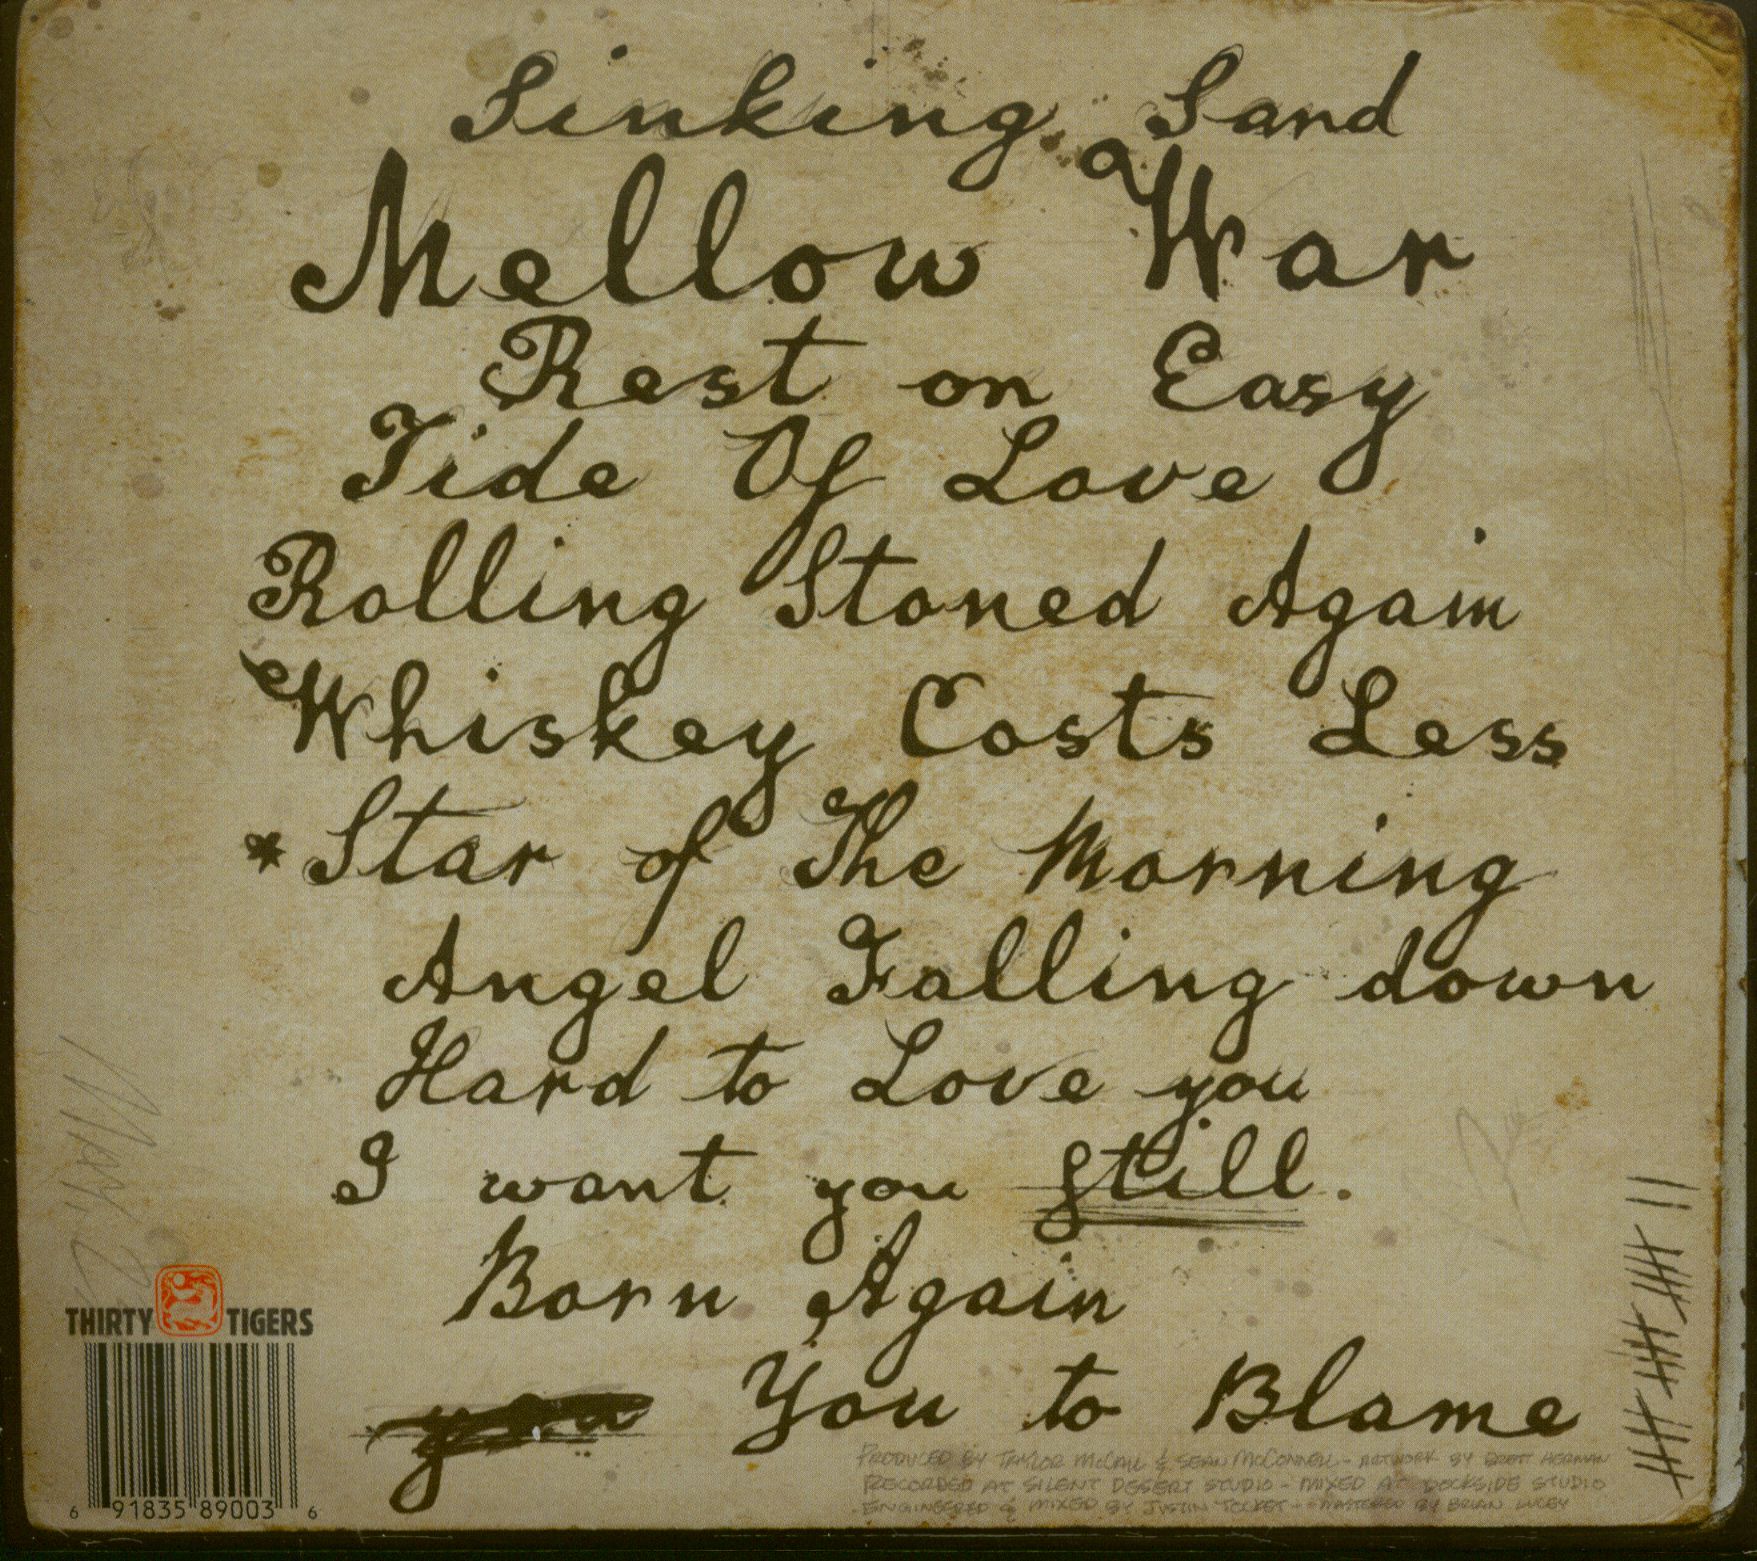 Sinking Sand
Mellow War
Rest on Easy
Tide Of Love
Rolling Stoned Again
Whiskey Costs Less
*Star of The Morning
Angel Falling down
Hard to Love you
I want you still.
Born Again
you You to Blame
THIRTY TIGERS
6 91835 89003 6
PRODUCED BY TAYLOR MCCALL & SEAN MCCONNELL - ARTWORK BY BRETT HERMAN
RECORDED AT SILENT DESERT STUDIO - MIXED AT DOCKSIDE STUDIO
- ENGINEERED & MIXED BY JUSTIN TOCKET - MASTERED BY BRIAN LUCEY